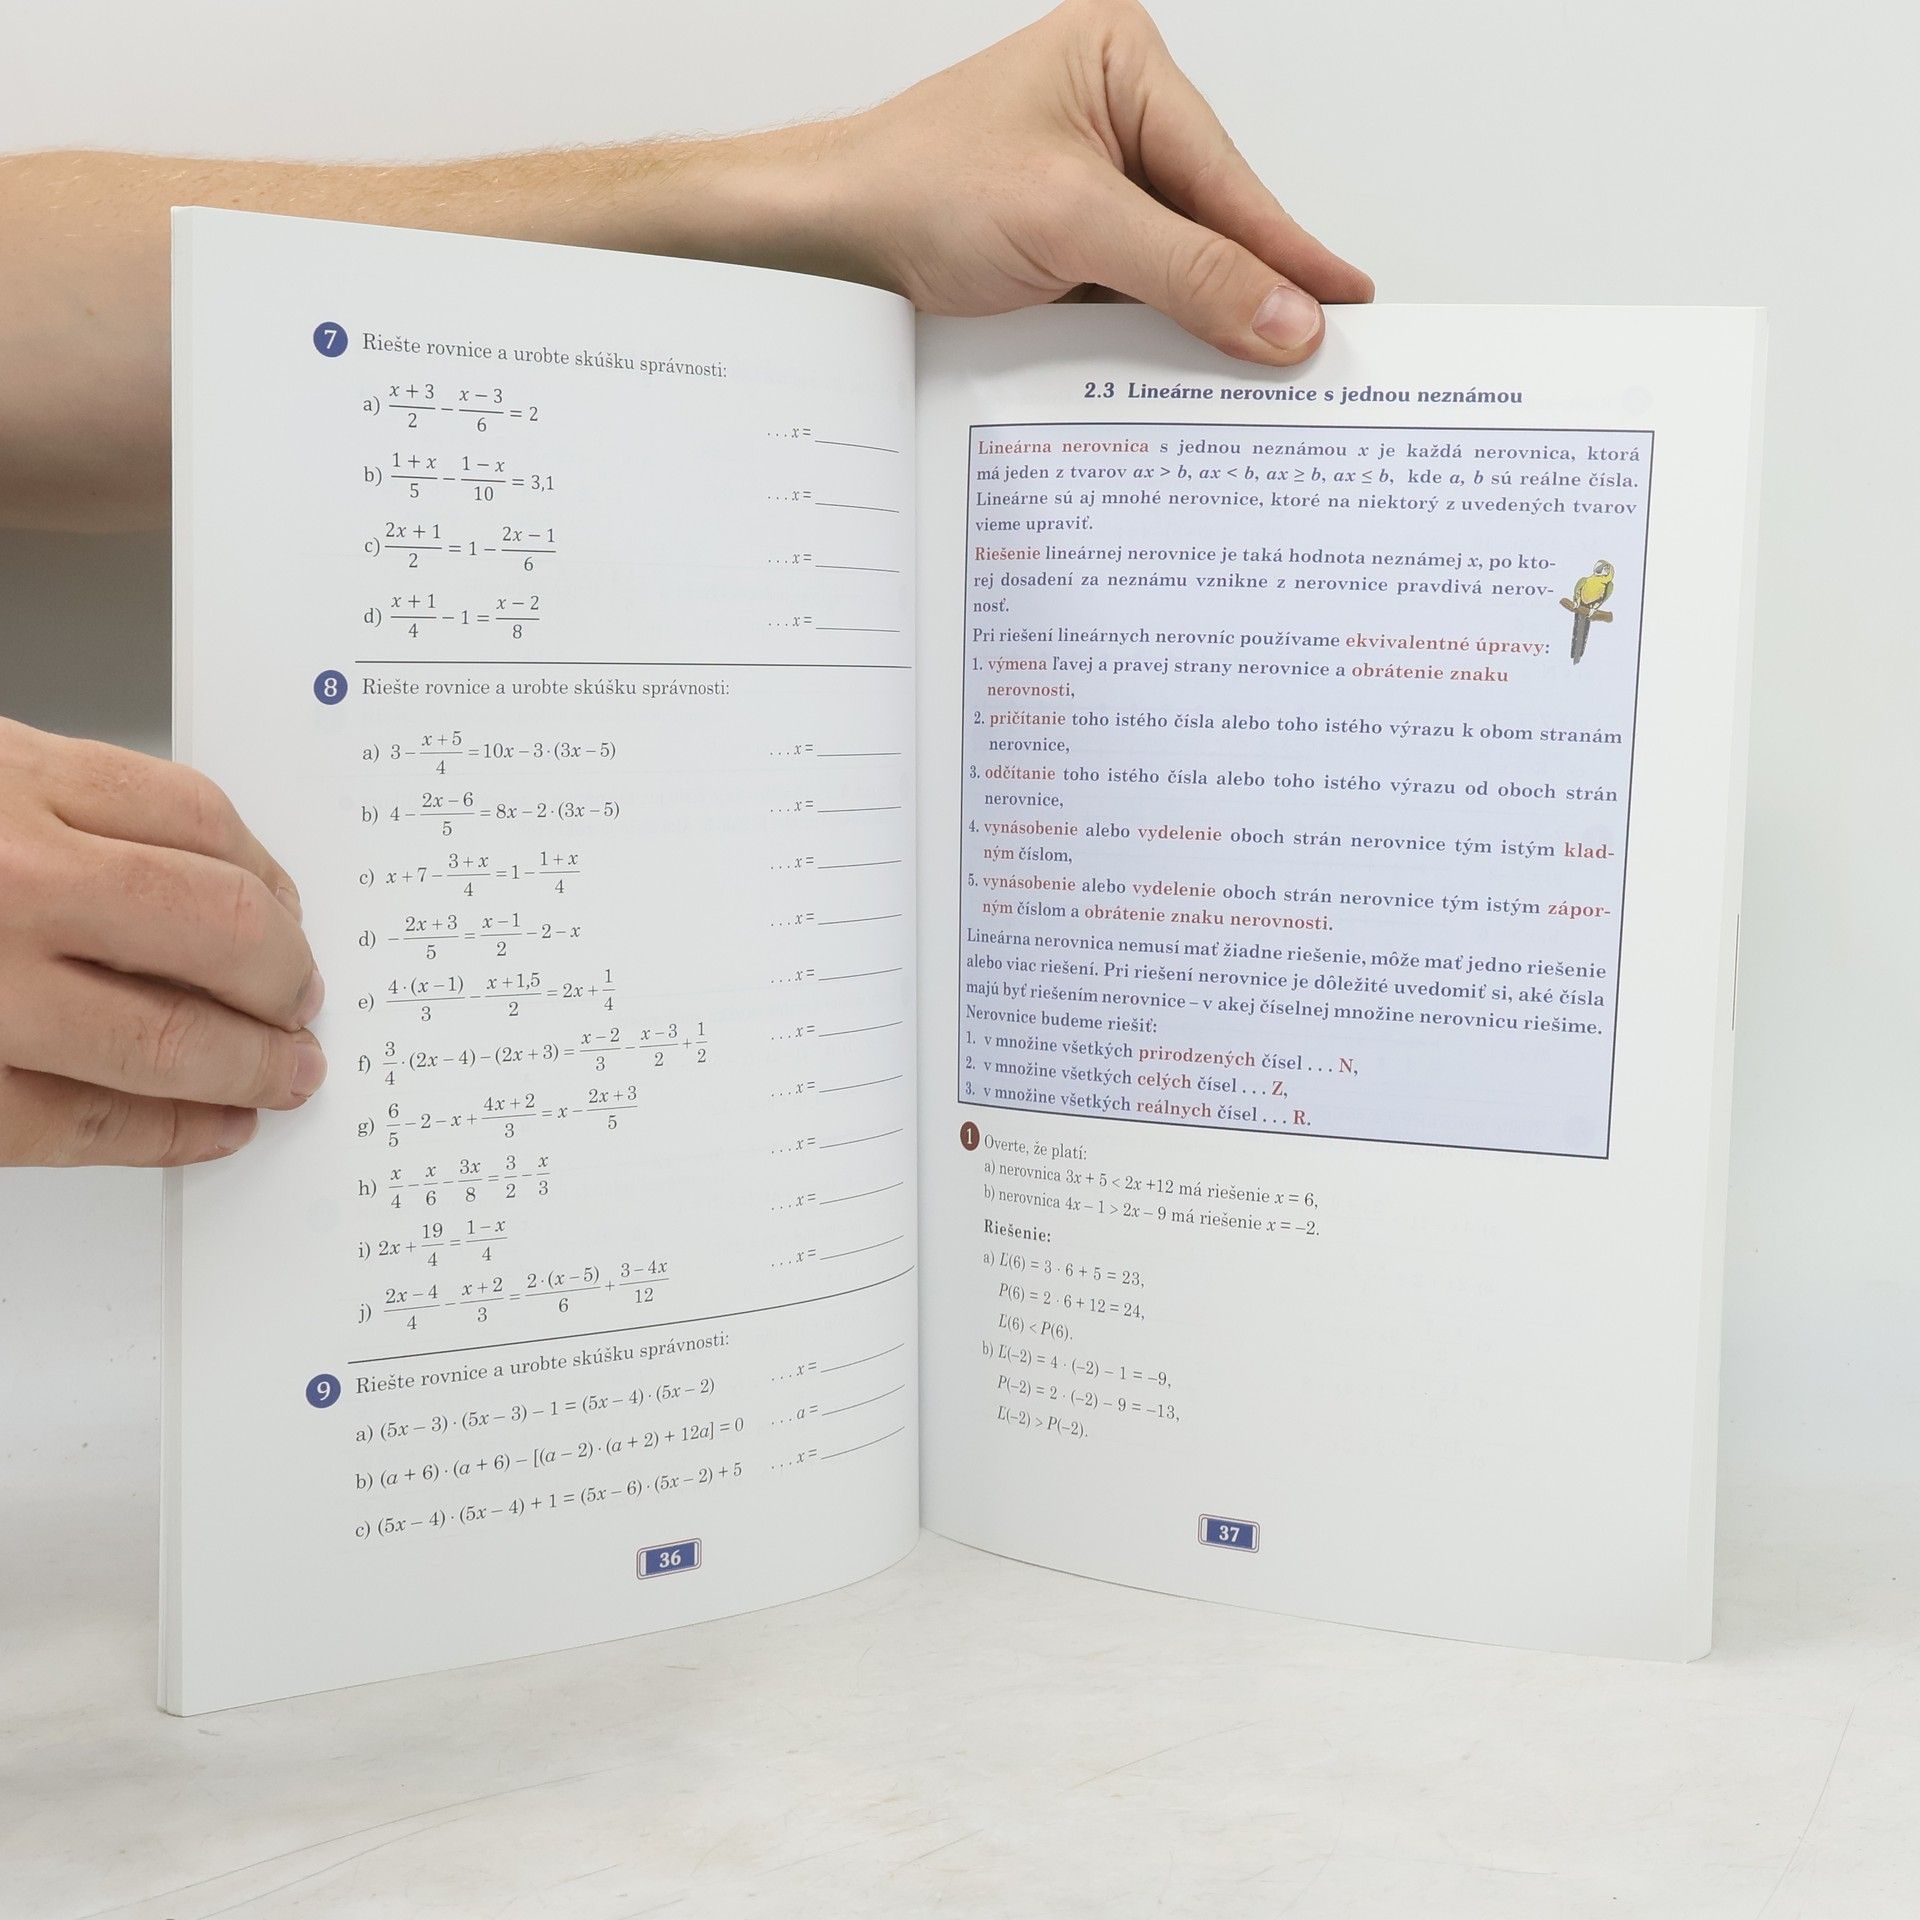 7 Riešte rovnice a urobte skúšku správnosti:
a) (x + 3)/2 − (x − 3)/6 = 2 ...x=
b) (1 + x)/5 − (1 − x)/10 = 3,1 ...x=
c) (2x + 1)/2 = 1 − (2x − 1)/6 ...x=
d) (x + 1)/4 − 1 = (x − 2)/8 ...x=
8 Riešte rovnice a urobte skúšku správnosti:
a) 3 − (x + 5)/4 = 10x − 3·(3x − 5) ...x=
b) 4 − (2x − 6)/5 = 8x − 2·(3x − 5) ...x=
c) x + 7 − (3 + x)/4 = 1 − (1 + x)/4 ...x=
d) − (2x + 3)/5 = (x − 1)/2 − 2 − x ...x=
e) 4·(x − 1)/3 − (x + 1,5)/2 = 2x + 1/4 ...x=
f) 3/4·(2x − 4) − (2x + 3) = (x − 2)/3 − (x − 3)/2 + 1/2 ...x=
g) 6/5 − 2 − x + (4x + 2)/3 = x − (2x + 3)/5 ...x=
h) x/4 − x/6 − 3x/8 = 3/2 − x/3 ...x=
i) 2x + 19/4 = (1 − x)/4 ...x=
j) (2x − 4)/4 − (x + 2)/3 = 2·(x − 5)/6 + (3 − 4x)/12 ...x=
9 Riešte rovnice a urobte skúšku správnosti:
a) (5x − 3)·(5x − 3) − 1 = (5x − 4)·(5x − 2) ...x=
b) (a + 6)·(a + 6) − [(a − 2)·(a + 2) + 12a] = 0 ...a=
c) (5x − 4)·(5x − 4) + 1 = (5x − 6)·(5x − 2) + 5 ...x=
36
2.3 Lineárne nerovnice s jednou neznámou
Lineárna nerovnica s jednou neznámou x je každá nerovnica, ktorá
má jeden z tvarov ax > b, ax < b, ax ≥ b, ax ≤ b, kde a, b sú reálne čísla.
Lineárne sú aj mnohé nerovnice, ktoré na niektorý z uvedených tvarov
vieme upraviť.
Riešenie lineárnej nerovnice je taká hodnota neznámej x, po kto-
rej dosadení za neznámu vznikne z nerovnice pravdivá nerov-
nosť.
Pri riešení lineárnych nerovníc používame ekvivalentné úpravy:
1. výmena ľavej a pravej strany nerovnice a obrátenie znaku
nerovnosti,
2. pričítanie toho istého čísla alebo toho istého výrazu k obom stranám
nerovnice,
3. odčítanie toho istého čísla alebo toho istého výrazu od oboch strán
nerovnice,
4. vynásobenie alebo vydelenie oboch strán nerovnice tým istým klad-
ným číslom,
5. vynásobenie alebo vydelenie oboch strán nerovnice tým istým zápor-
ným číslom a obrátenie znaku nerovnosti.
Lineárna nerovnica nemusí mať žiadne riešenie, môže mať jedno riešenie
alebo viac riešení. Pri riešení nerovnice je dôležité uvedomiť si, aké čísla
majú byť riešením nerovnice – v akej číselnej množine nerovnicu riešime.
Nerovnice budeme riešiť:
1. v množine všetkých prirodzených čísel ... N,
2. v množine všetkých celých čísel ... Z,
3. v množine všetkých reálnych čísel ... R.
1 Overte, že platí:
a) nerovnica 3x + 5 < 2x +12 má riešenie x = 6,
b) nerovnica 4x − 1 > 2x − 9 má riešenie x = −2.
Riešenie:
a) Ľ(6) = 3 · 6 + 5 = 23,
P(6) = 2 · 6 + 12 = 24,
Ľ(6) < P(6).
b) Ľ(−2) = 4 · (−2) − 1 = −9,
P(−2) = 2 · (−2) − 9 = −13,
Ľ(−2) > P(−2).
37